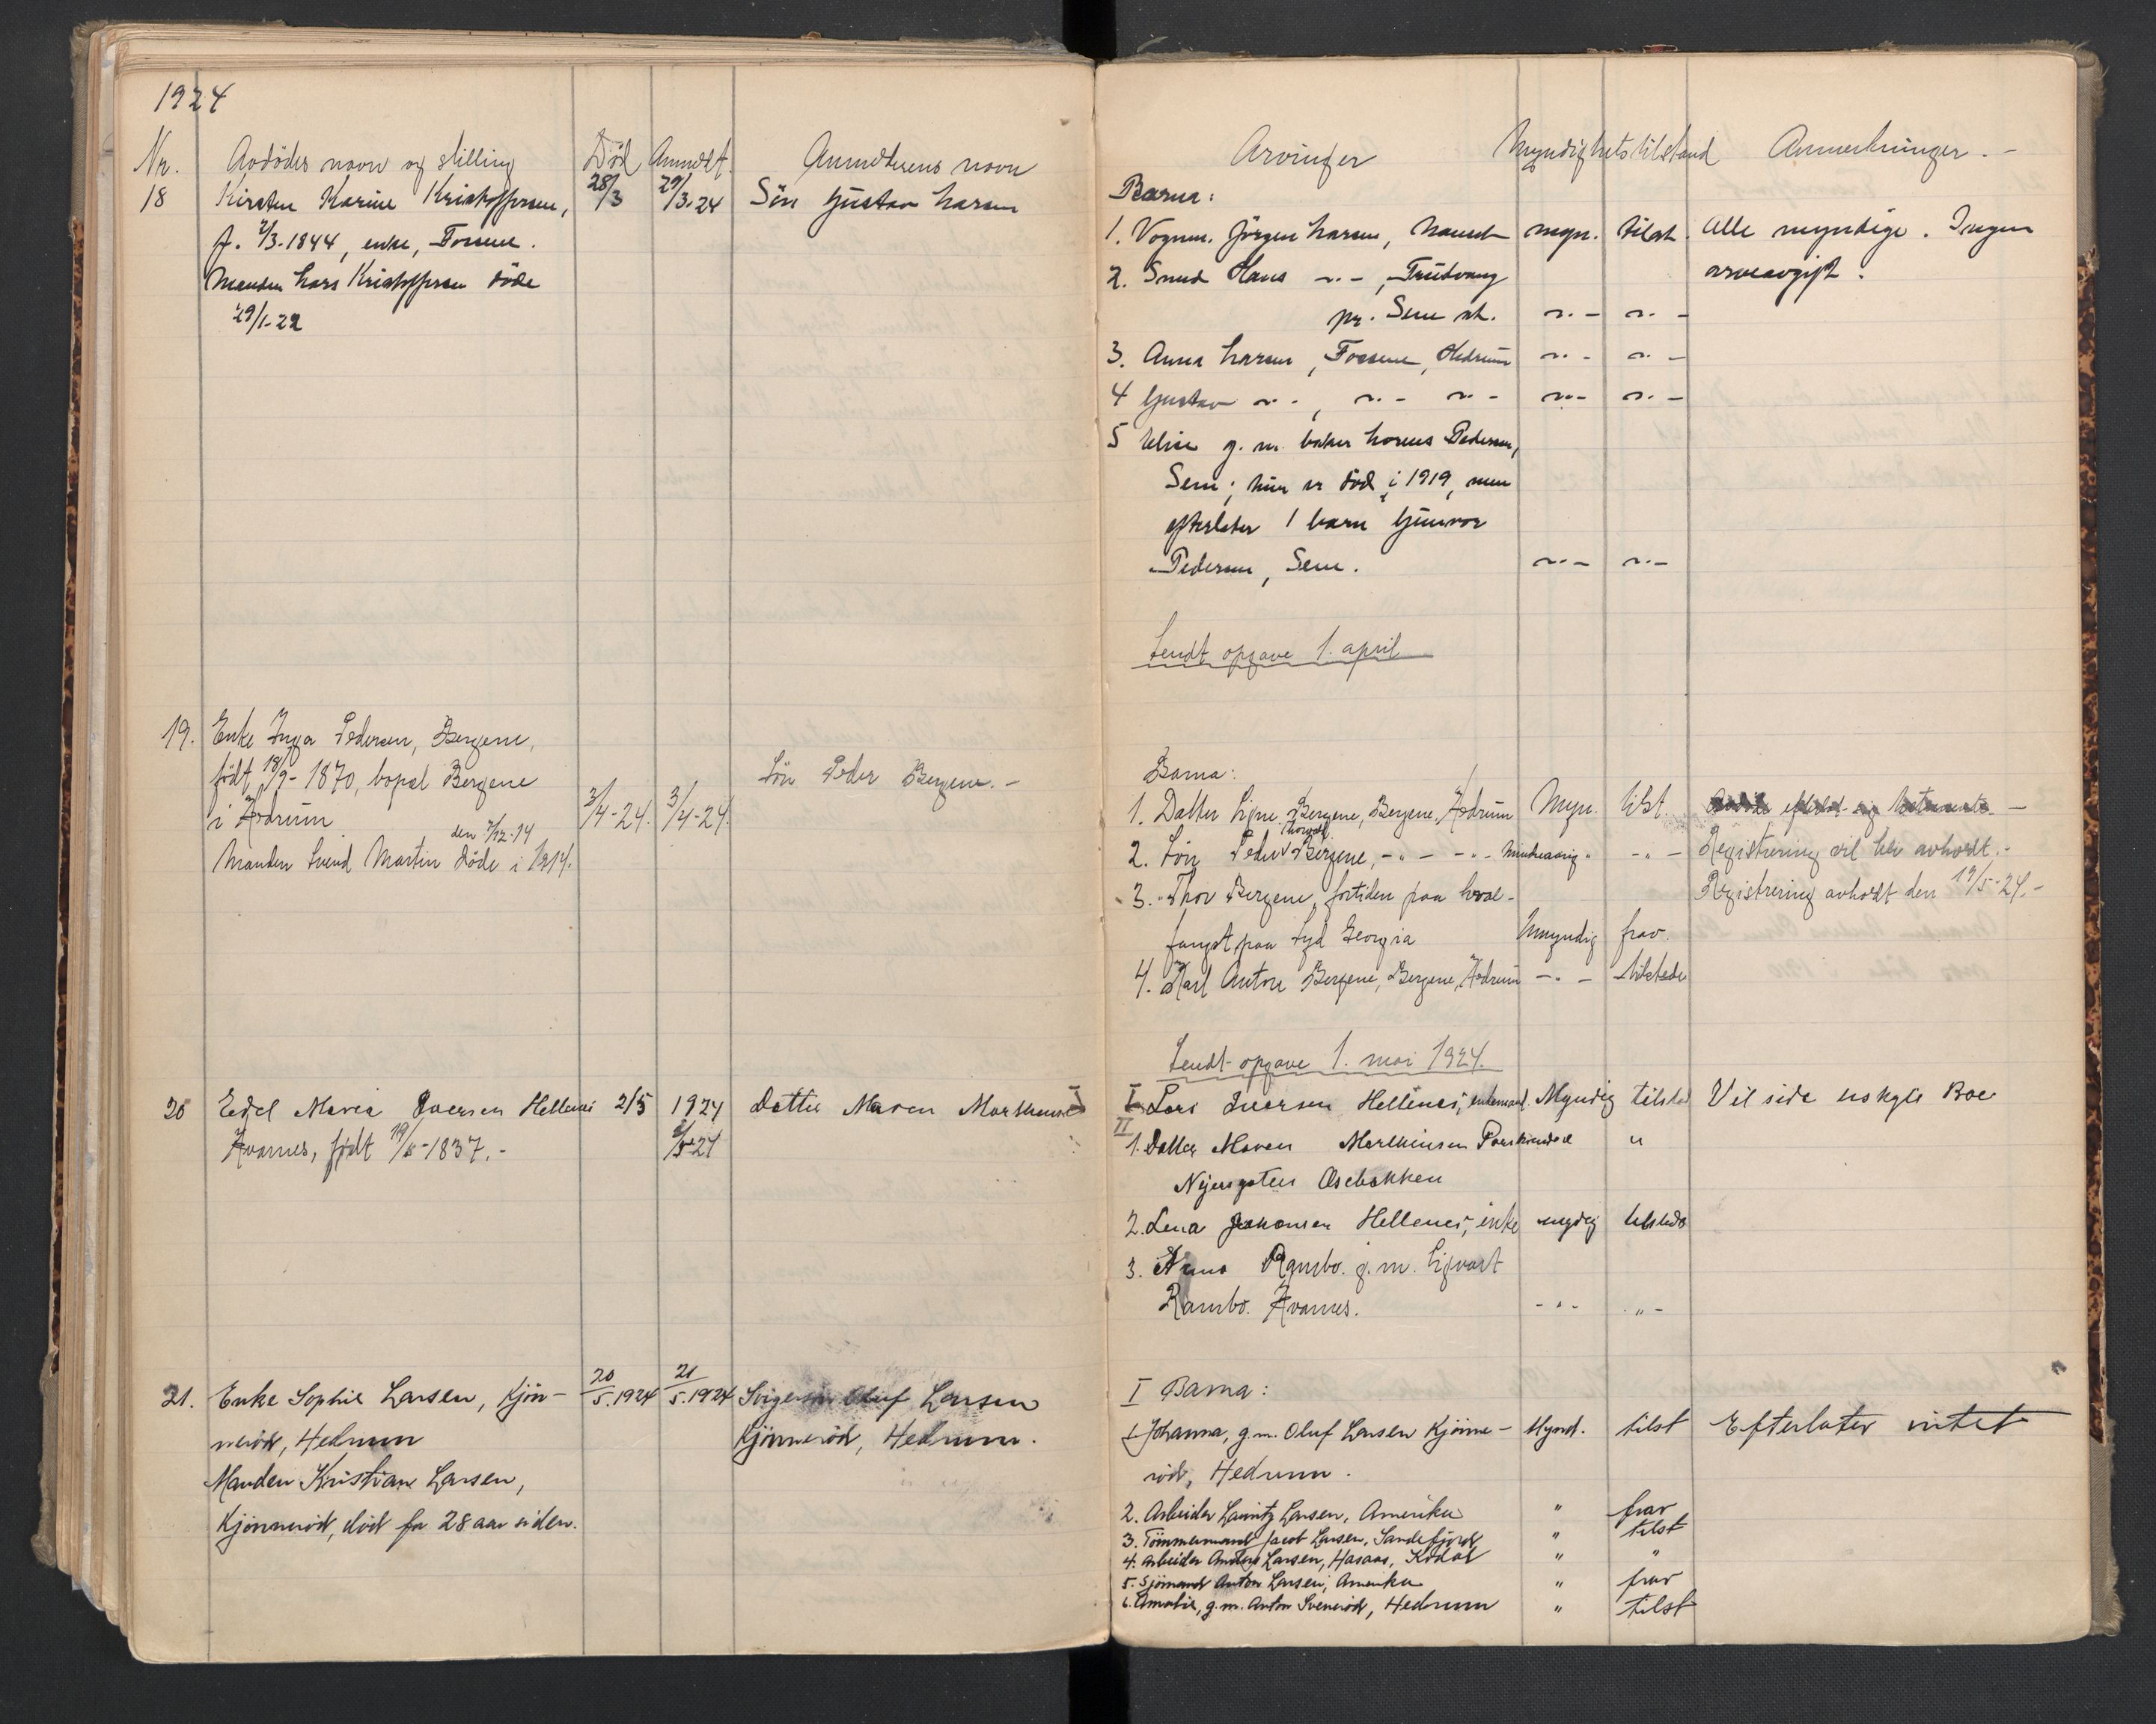 1924
Nr. Avdödes navn og stilling Död Anmeldt. Anmelderens navn
18 Kirsten Karine Kristoffersen, 28/3 29/3-24 Sön Gustav Larsen
f. 2/3-1844, enke, Fossene.
Manden Lars Kristoffersen döde
29/1-22
19. Enke Inga Pedersen, Bergene,
födt 18/9-1870, bopæl Bergene Sön Peder Bergene.-
i Hedrum 3/4-24. 3/4-24.
den 7/12-14
Manden Svend Martin döde i 1914.
20 Edel Maria Iversen Hellenes 2/5 1924 Datter Maren Marthinsen
Kvarnes, født 19/5-1837.- 2/5-24
21. Enke Sophie Larsen, Kjön- 20/5.1924 21/5.1924 Svigersön Oluf Larsen
neröd, Hedrum Kjönneröd, Hedrum.
Manden Kristian Larsen,
Kjönneröd, död for 28 aar siden.
Arvinger Myndighetstilstand Anmerkninger.-
Barna:
1. Vognm. Jörgen Larsen, myn. tilst. Alle myndige. Ingen
2. Smed Hans -"-, Trudvang arveavgift.
pr. Sem st. -"- -"-
3. Anna Larsen, Fossene, Hedrum -"- -"-
4 Gustav -"-, -"- -"- -"- -"-
5 Elise g. m. baker Lorens Pedersen,
Sem; hun er död i 1919, men
efterlater 1 barn Gunvor
Pedersen, Sem. -"- -"-
Sendt opgave 1. april
Barna:
1. Datter Signe Bergene, Bergene, Hedrum Myn. tilst.
2. Sön Peder Bergene, -"- -"- Mindreaarig -"- Registrering vil bli avholdt.-
3. Thor Bergene, fortiden paa hval- Registrering avholdt den 19/5-24.-
fangst paa Syd Georgia Umyndig frav.
4. Karl Anton Bergene, Bergene, Hedrum -"- tilstede
Sendt opgave 1. mai 1924.
I Lars Iversen Hellenes, enkemand. Myndig tilsted Vil side uskyte Boe
II
1. Datter Maren Marthinsen Porskrundel "
Nyensgaten Osebakken
2. Lena Johansen Hellenes, enke mydig tilstede
3. Anna Rambo. g. m. Sigvart
Rambo. Kvarnes. -"- -"-
I Barna:
1 Johanna, g. m. Oluf Larsen Kjönne- Mynd. tilst Efterlater intet
röd, Hedrum.
2. Arbeider Lauritz Larsen, Amerika " frav
3. Tömmermand Jacob Larsen, Sandefjord " tilst
4. Arbeider Anders Larsen, Hasaas, Kodal " "
5. Sjömand Anton Larsen, Amerika " frav
6. Amalie, g. m. Anton Sveneröd, Hedrum " tilst